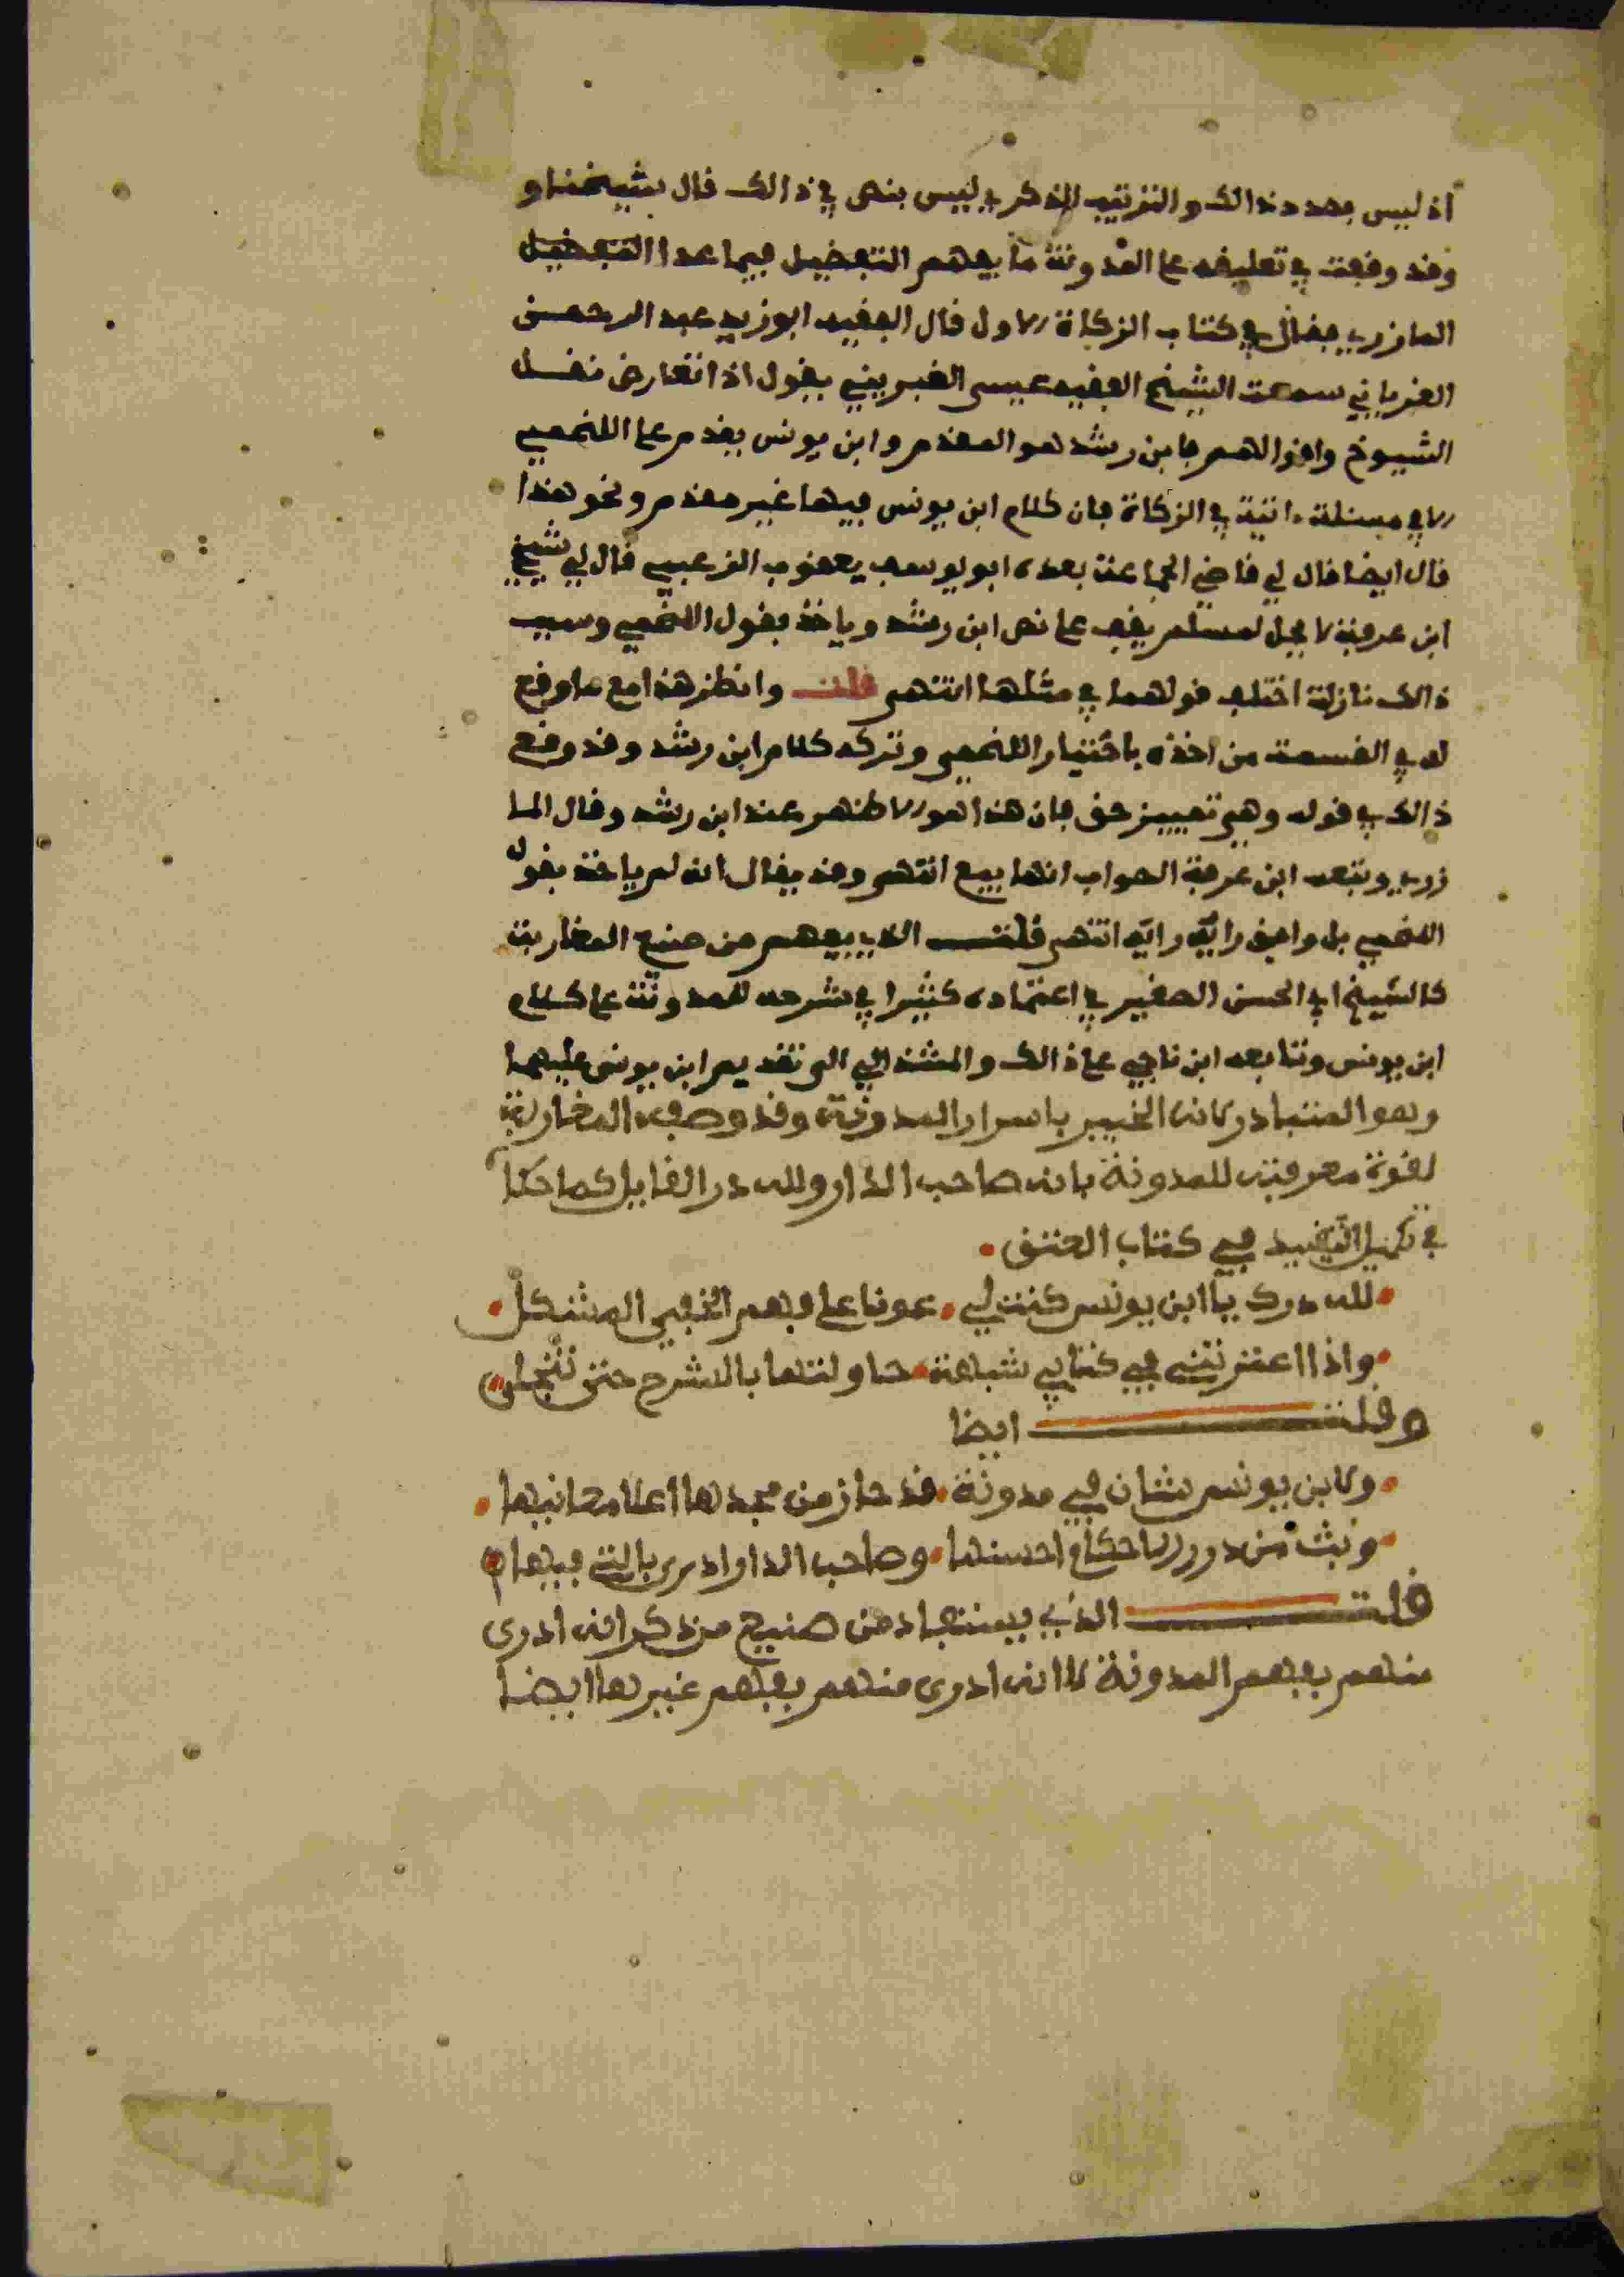 اذ ليس بصدد ذالك والترتيب الذكري ليس بنص في ذالك قال شيخنا و
وقد وقعت في تعليقه على المدونة ما يفهم التفضيل فيما عدا التفضيل
المازري فقال في كتاب الزكاة الاول قال الفقيه ابو زيد عبد الرحمن
الغرياني سمعت الشيخ الفقيه عيسى الغبريني يقول اذا تعارض نقل
الشيوخ واقوالهم فابن رشد هو المقدم وابن يونس يقدم على اللخمي
الا في مسئلة ءاتية في الزكاة فان كلام ابن يونس فيها غير مقدم ونحو هذا
قال ايضا قال لي قاضي الجماعة بعده ابو يوسف يعقوب الزعبي قال لي شيخي
ابن عرفة لا يحل لمسلم يقف على نص ابن رشد وياخذ بقول اللخمي وسبب
ذالك نازلة اختلف قولهما في مثلها انتهى قلت وانظر هذا مع ما وقع
له في القسمة من اخذه باختيار اللخمي وتركه كلام ابن رشد وقد وقع
ذالك في قوله وهي تمييز حق فان هذا هو الاظهر عند ابن رشد وقال الما
زري وتبعه ابن عرفة الصواب انها بيع انتهى وقد يقال انه لم ياخذ بقول
اللخمي بل وافق رايه رايه انتهى قلت الذي يفهم من صنيع المغاربة
كالشيخ ابي الحسن الصغير في اعتماده كثيرا في شرحه للمدونة على كلام
ابن يونس وتابعه ابن ناجي على ذالك والمشذالي الى تقديم ابن يونس عليهما
وهو المتبادر لانه الخبير باسرار المدونة وقد وصفه المغاربة
لقوة معرفته للمدونة بانه صاحب الدار ولله در القايل كما حكا
في تكميل التقييد في كتاب العتق
لله درك يا ابن يونس كنت لي عونا على فهم الخفي المشكل
واذا اعترتني في كتابي شبهة حاولتها بالشرح حتى تنجلي
وقلت ايضا
ولابن يونس شان في مدونة قد حاز من مجدها اعلا معانيها
وبث من درر الاحكام احسنها وصاحب الدار ادرى بالتي فيها
قلت الذي يستفاد من صنيع من ذكر انه ادرى
منهم بفهم المدونة لا انه ادرى منهم بفهم غيرها ايضا